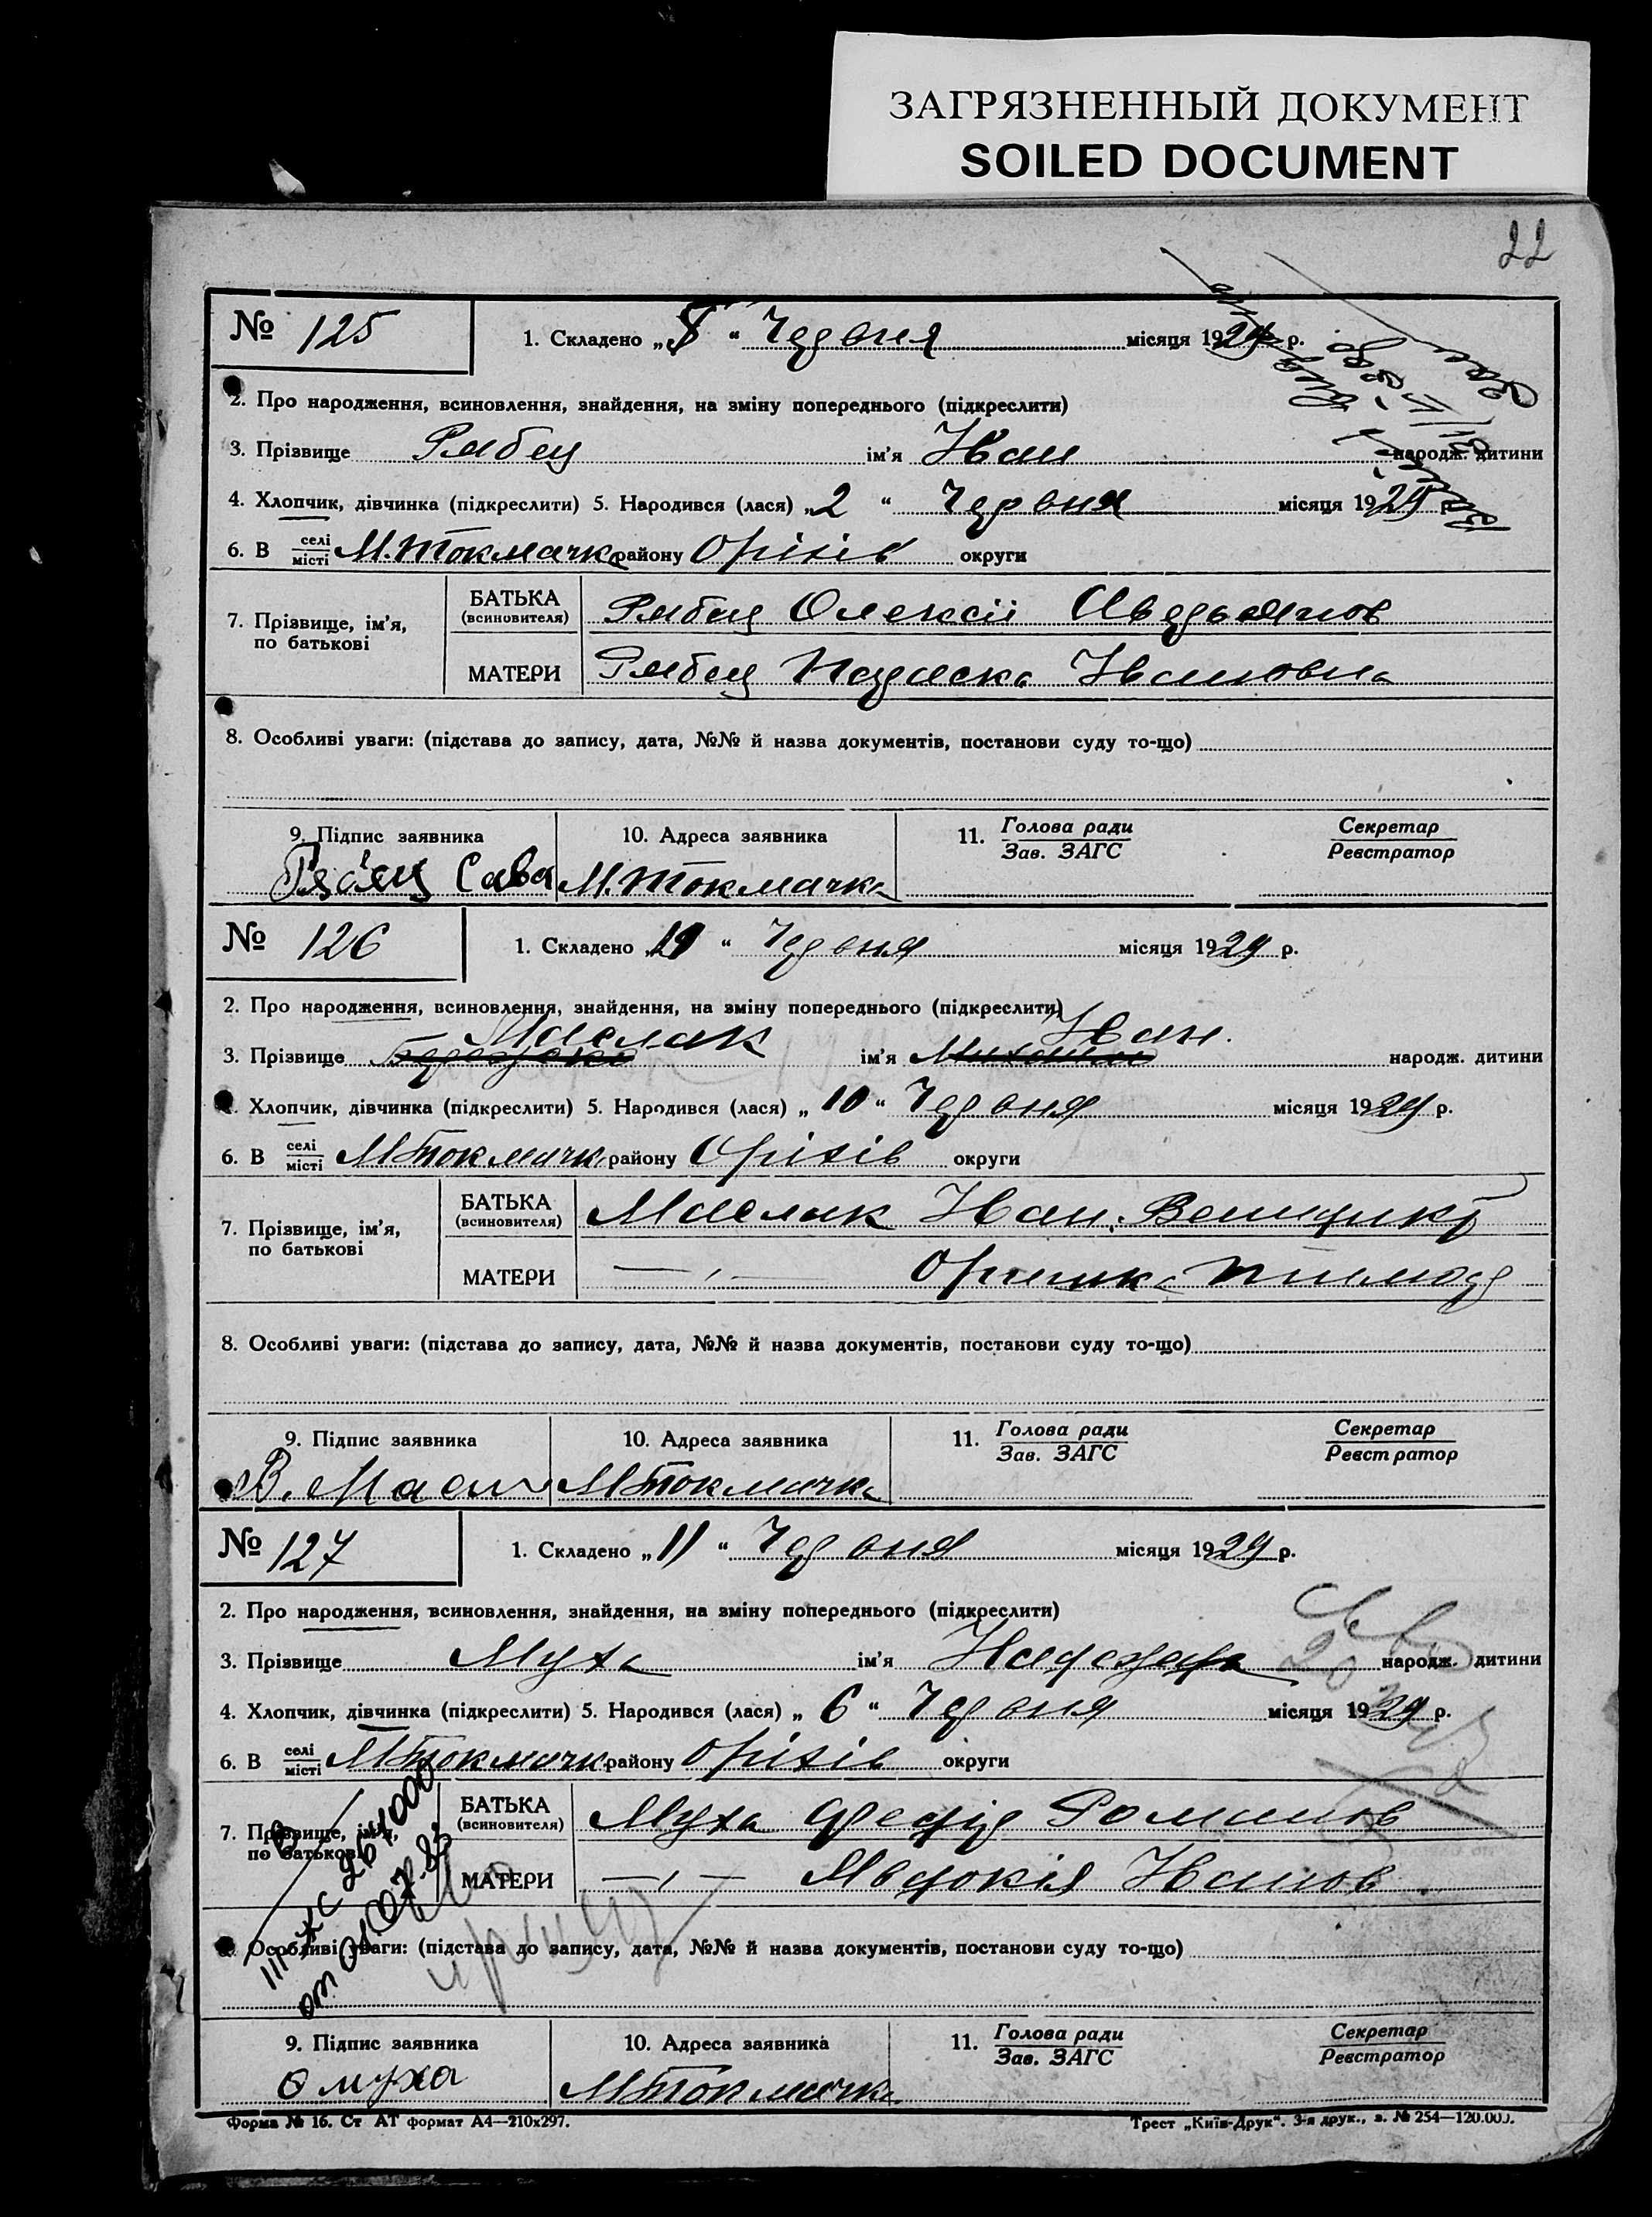 ЗАГРЯЗНЕННЫЙ ДОКУМЕНТ
SOILED DOCUMENT
22
№ 125
1. Складено „8“ Червня місяця 1929 р.
2. Про народження, всиновлення, знайдення, на зміну попереднього (підкреслити)
3. Прізвище Рябец ім'я Иван народж. дитини
4. Хлопчик, дівчинка (підкреслити) 5. Народився (лася) „2“ Червня місяця 1929 р.
6. В селі місті М.Токмачка району Оріхів округи
7. Прізвище, ім'я, по батькові
БАТЬКА (всиновителя) Рябец Олексій
МАТЕРИ Рябец Параска Ивановна
8. Особливі уваги: (підстава до запису, дата, №№ й назва документів, постанови суду то-що)
9. Підпис заявника 10. Адреса заявника 11. Голова ради Зав. ЗАГС Секретар Реєстратор
Рябец Сава М.Токмачка
№ 126
1. Складено „ “ Червня місяця 1929 р.
2. Про народження, всиновлення, знайдення, на зміну попереднього (підкреслити)
Маслак Иван.
3. Прізвище ім'я народж. дитини
4. Хлопчик, дівчинка (підкреслити) 5. Народився (лася) „10“ Червня місяця 1929 р.
6. В селі місті М Токмачк району Оріхів округи
7. Прізвище, ім'я, по батькові
БАТЬКА (всиновителя) Маслак Иван
МАТЕРИ —„—
8. Особливі уваги: (підстава до запису, дата, №№ й назва документів, постанови суду то-що)
9. Підпис заявника 10. Адреса заявника 11. Голова ради Зав. ЗАГС Секретар Реєстратор
В. Масл М Токмачка
№ 127
1. Складено „11“ Червня місяця 1929 р.
2. Про народження, всиновлення, знайдення, на зміну попереднього (підкреслити)
3. Прізвище Муха ім'я народж. дитини
4. Хлопчик, дівчинка (підкреслити) 5. Народився (лася) „6“ Червня місяця 1929 р.
6. В селі місті М Токмачк району Оріхів округи
7. Прізвище, ім'я, по батькові
БАТЬКА (всиновителя) Муха Федір Романов
МАТЕРИ —„— Явдокія Иванов
8. Особливі уваги: (підстава до запису, дата, №№ й назва документів, постанови суду то-що)
9. Підпис заявника 10. Адреса заявника 11. Голова ради Зав. ЗАГС Секретар Реєстратор
Ф муха М Токмачка
Форма № 16. Ст АТ формат А4—210х297.
Трест „Київ-Друк“. 3-я друк., з. № 254—120.000.